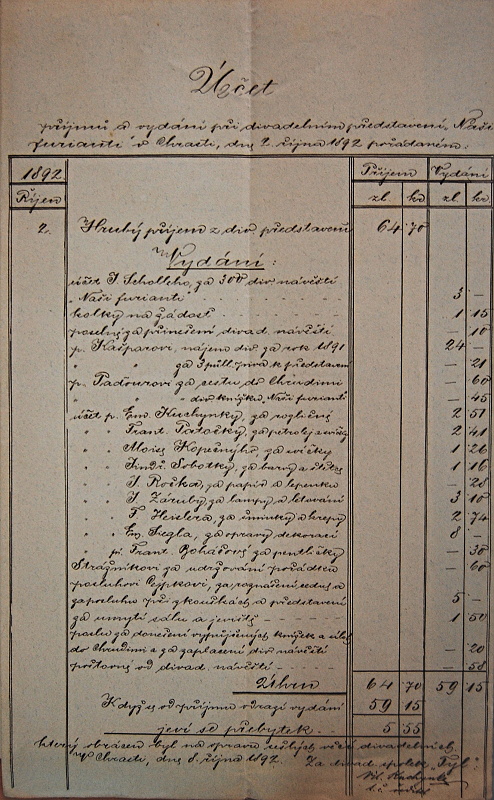 Účet
příjmů a vydání při divadelním představení „Naši
furianti“ v Chrasti, dne 2. října 1892 pořádaném:
1892 Příjem Vydání
Říjen zl. kr zl. kr
2. Hrubý příjem z div. představení 64 70
Vydání:
účet J. Scholleho, za 300 div. návěští
„Naši furianti“ 3 -
kolky na žádost 1 15
poselné za přinešení divad. návěští - 10
p. Kašparovi, nájem div. za rok 1891 24 -
" " za 3 půll. piva k představení - 21
p. Paďourovi za cestu do Chrudimi - 60
" " div. knížku Naši furianti - 45
účet p. Em. Kuchynky, za rozličné 2 51
" " Frant. Patočky, za petrolej a svíčky 2 41
" " Aloise Kopečnýho, za svíčky 1 26
" " Jindř. Sobotky, za barvy a 1 16
" " J. Ročka, za papír a lepenku - 28
" " J. Záruby, za lampy a letování 3 10
" " F. Heislera, za šminky a krepy 2 74
" " Em. Siegla, za opravy dekorací 8 -
" " pí. Frant. Boháčové za pentličky - 30
Strážníkovi za udržování pořádku - 60
posluhovi Cypkovi, za roznášení cedulí a
za posluhu při zkouškách a představení 5 -
za umytí sálu a jeviště 1 50
poslu za donešení vypůjčených knížek a úloh
do Chrudimi a za zaplacení div. návěští - 20
poštovné od divad. návěští - 58
Úhrn 64 70 59 15
Když se od příjmu odrazí vydání 59 15
jeví se přebytek 5 55
který obrácen byl na správu sešlých věcí divadelních.
V Chrasti, dne 8. října 1892. Za divad. spolek „Tyl“:
Vil. Kuchynka
t. č.